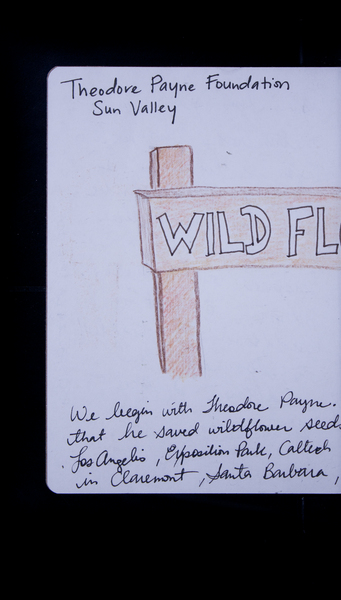 Theodore Payne Foundation
Sun Valley
WILD FL
We begin with Theodore Payne.
that he saved wildflower seeds
Los Angelis, Exposition Park, Caltech
in Claremont, Santa Barbara,